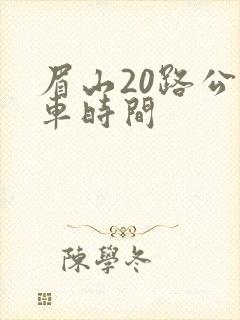 眉山20路公
車時間
陳學冬